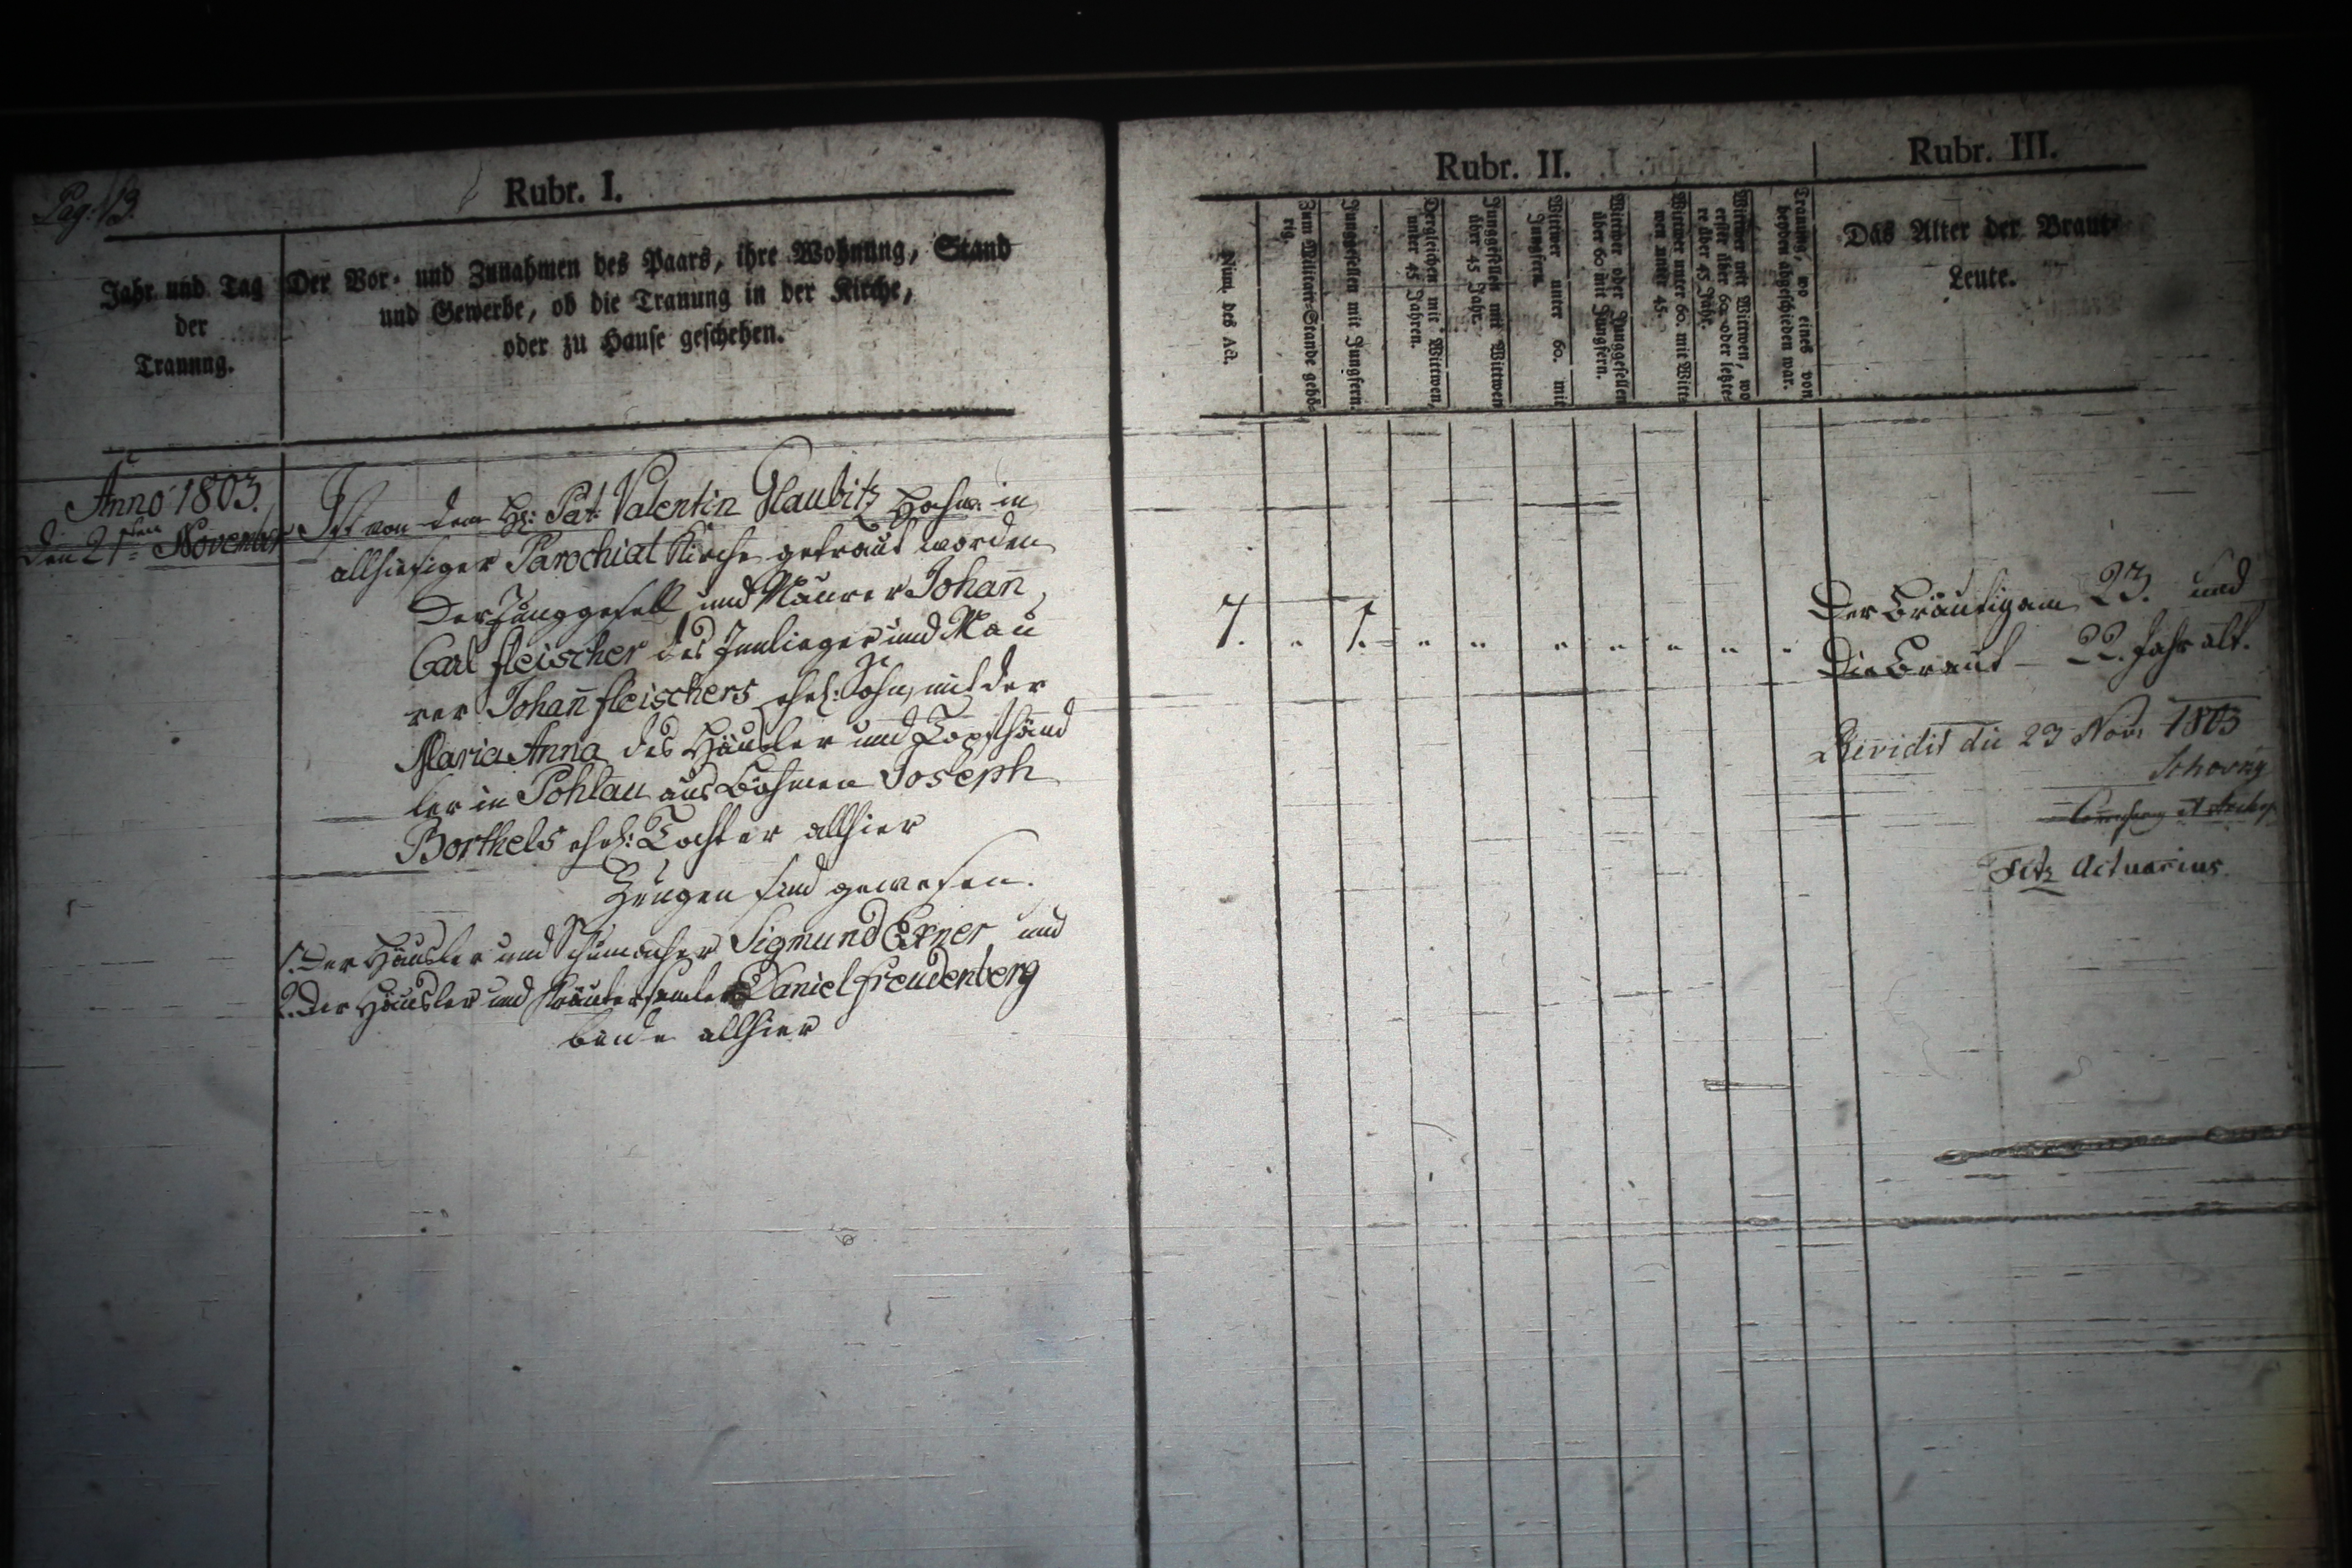 Pag: 13.
Rubr. I.
Jahr und Tag
der
Trauung.
Der Vor- und Zunahmen des Paars, ihre Wohnung, Stand
und Gewerbe, ob die Trauung in der Kirche,
oder zu Hause geschehen.
Anno 1803.
den 21ten November
Ist von dem H: Pat: Valentin Glaubitz Hochw. in
allhiesiger Parochial Kirche getraut worden
Der Junggesell und Maurer Johan̄
Carl fleischer des Innlieger und Mau
rer Johan̄ fleischers ehel: Sohn, mit der
Maria Anna des Häusler und Topfhänd
ler in Pohlau aus Böhmen Joseph
Borthels ehel: Tochter allhier
Zeugen sind gewesen.
1. Der Häusler und Schumacher Sigmund Exner und
2. Der Häusler und Kräutersamler Daniel freudenberg
beide allhier
Rubr. II.
Num. des Act.
Zum Militair-Stande gehö-
rig.
Junggesellen mit Jungfern.
Dergleichen mit Wittwen,
unter 45 Jahren.
Junggesellen mit Wittwen
über 45 Jahr.
Wittwer unter 60. mit
Jungfern.
Wittwer oder Junggesellen
über 60 mit Jungfern.
Wittwer unter 60. mit Witt-
wen unter 45.
Wittwer mit Wittwen, wo
erster über 60. oder letzte-
re über 45 Jahr.
Trauung, wo eines von
beyden abgeschieden war.
7. " 1. " " " " " " "
Rubr. III.
Das Alter der Braut-
Leute.
Der Bräutigam 23. und
Die Braut — 22. Jahr alt.
Revidit die 23 Nov: 1803
Actuarius.